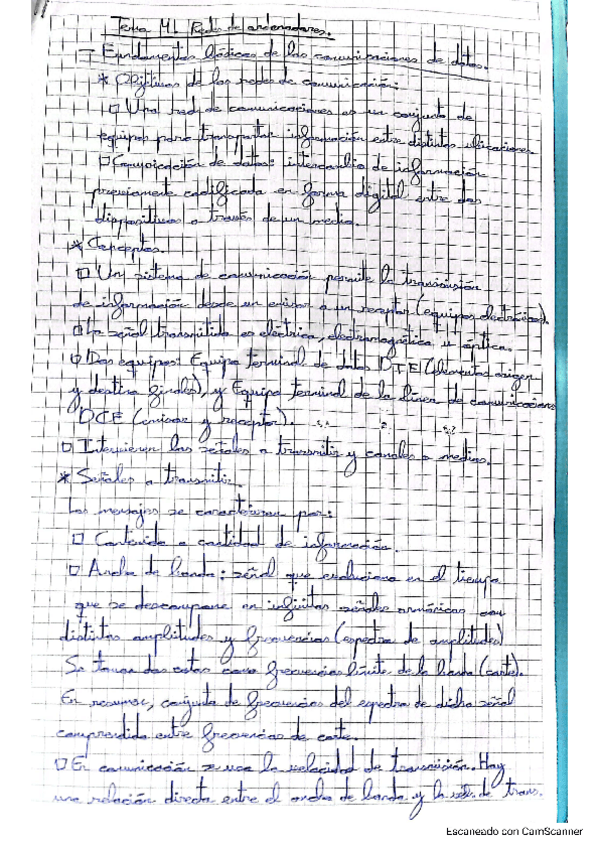 Tema 4. Redes de ordenadores.
- Fundamentos básicos de las comunicaciones de datos.
* Objetivos de las redes de comunicación:
□ Una red de comunicaciones es un conjunto de
equipos para transportar información entre distintas ubicaciones
□ Comunicación de datos: intercambio de información
previamente codificada en forma digital entre dos
dispositivos a través de un medio.
* Conceptos.
□ Un sistema de comunicación permite la transmisión
de información desde un emisor a un receptor (equipos electrónicos).
□ La señal transmitida es eléctrica, electromagnética u óptica.
□ Dos equipos: Equipo terminal de datos DTE (elementos origen
y destino finales), y Equipo terminal de la línea de comunicaciones
DCE (emisor y receptor).
□ Intervienen las señales a transmitir y canales o medios.
* Señales a transmitir.
Los mensajes se caracterizan por:
□ Contenido o cantidad de información.
□ Ancho de banda: señal que evoluciona en el tiempo
que se descompone en infinitas señales armónicas con
distintas amplitudes y frecuencias (espectro de amplitudes)
Se toman dos cotas como frecuencias límite de la banda (corte).
En resumen, conjunto de frecuencias del espectro de dicha señal
comprendido entre frecuencias de corte.
□ En comunicación se usa la velocidad de transmisión. Hay
una relación directa entre el ancho de banda y la vel. de trans.
Escaneado con CamScanner